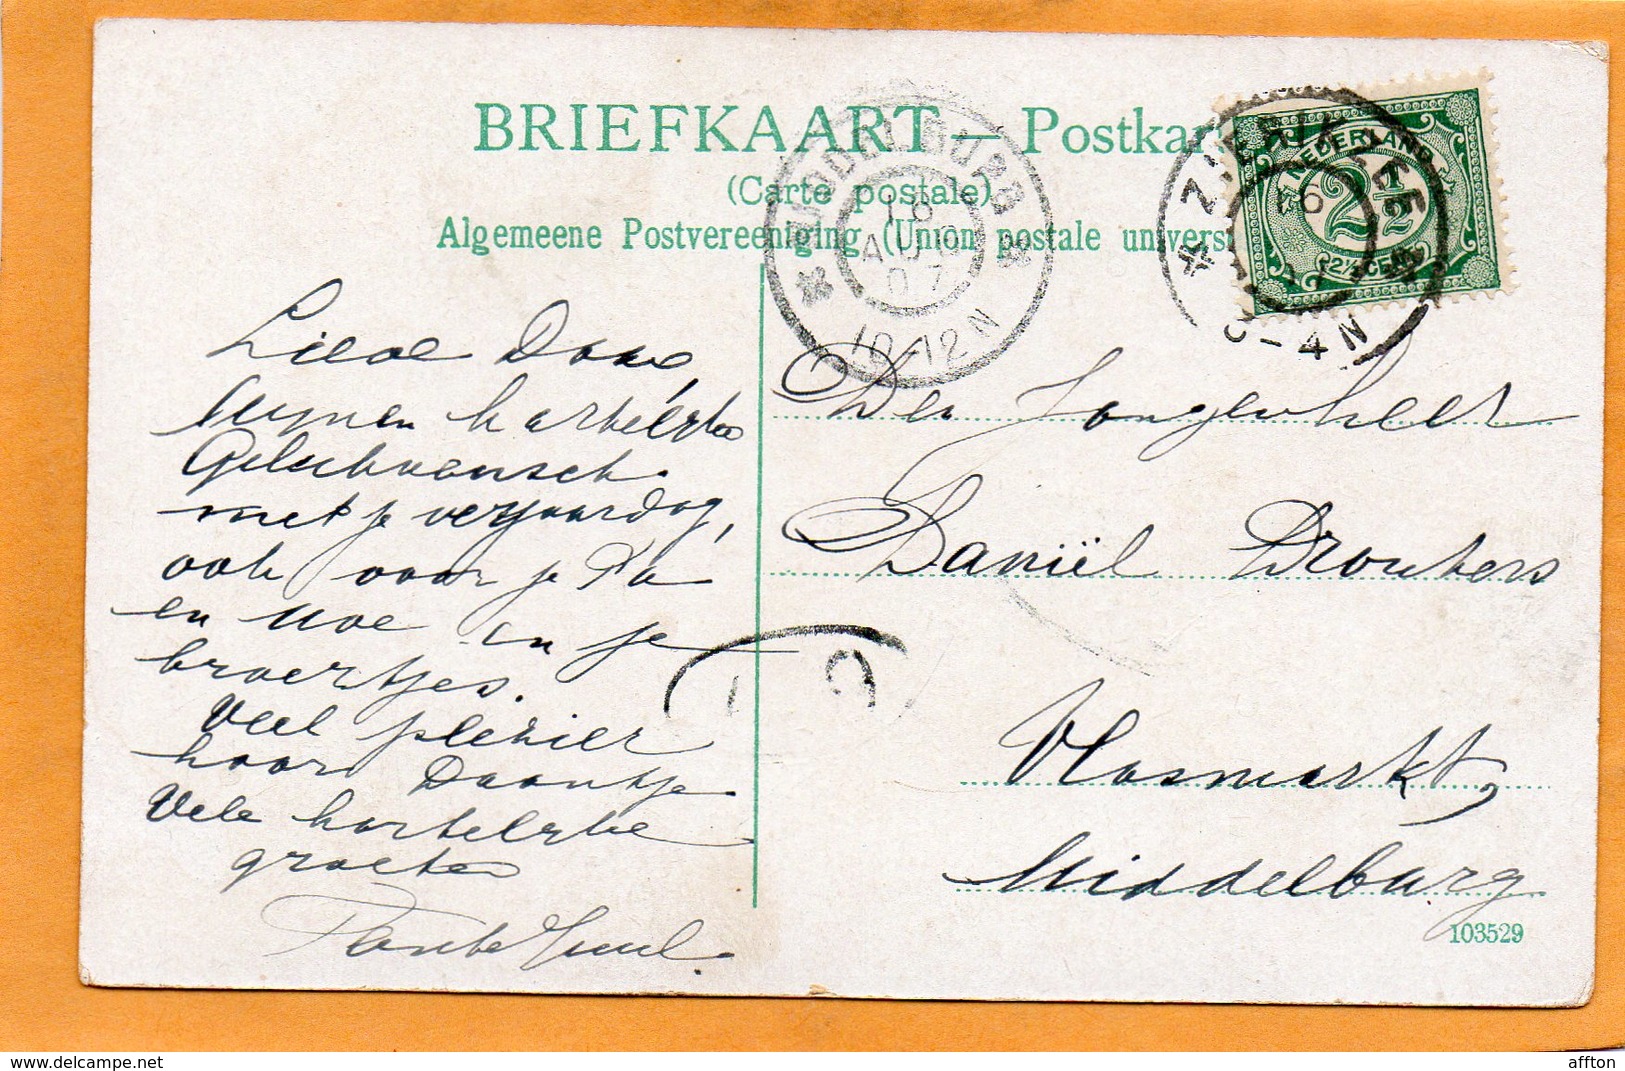 BRIEFKAART — Postkar
(Carte postale)
Algemeene Postvereeniging (Union postale univers
MIDDELBURG
16
AUG
07
10-12N
ZIERIKZEE
NEDERLAND
2½
2½ CENT
-4N
Lieve Daan,
mijnen hartelijke
Gelukwensch
met je verjaardag,
ook voor je Pa
en Moe en je
broertjes.
Veel plezier
hoor Daantje
Vele hartelijke
groeten
Tante
Den Jongenheer
Daniël
Vlasmarkt,
Middelburg
103529
www.delcampe.net
affton